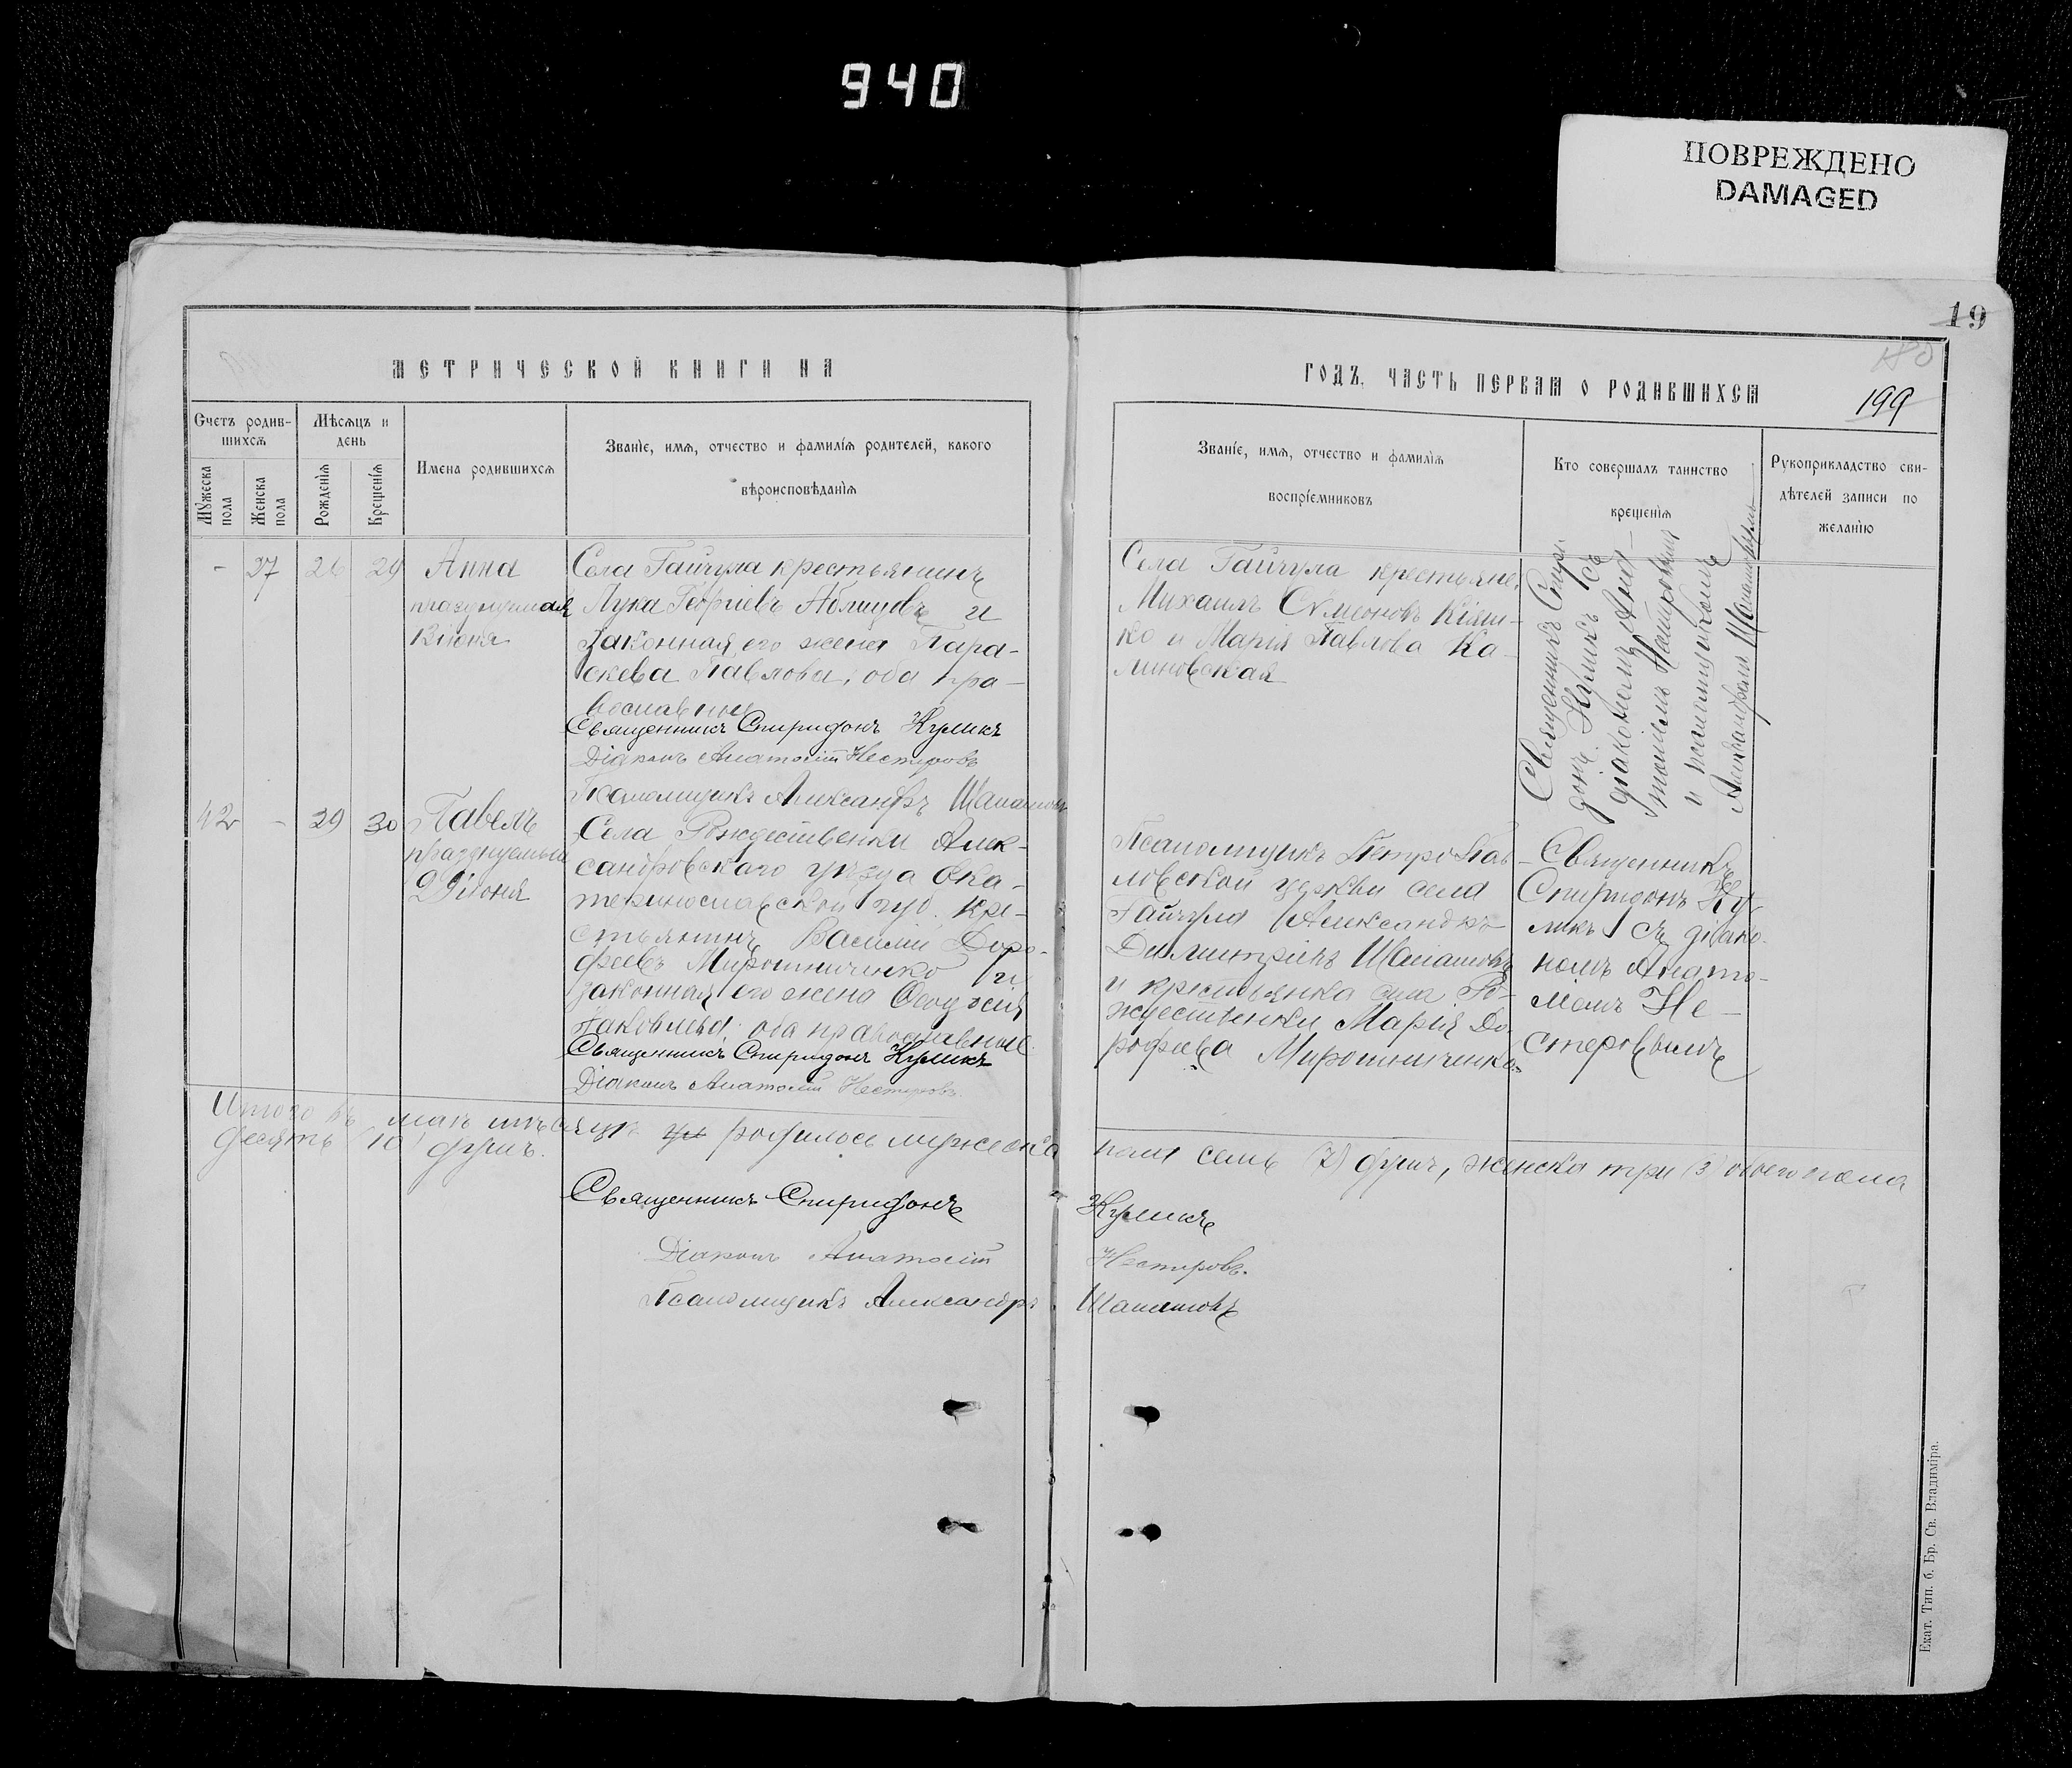 940
ПОВРЕЖДЕНО
DAMAGED
19
180
199
МЕТРИЧЕСКОЙ КНИГИ НА
ГОДЪ, ЧАСТЬ ПЕРВАѦ О РОДИВШИХСѦ
Счетъ родив-
шихсѧ
Мѣсѧцъ и
день
Имена родившихсѧ
Званіе, имѧ, отчество и фамиліѧ родителей, какого
вѣроисповѣданіѧ
Мꙋжеска
пола
Женска
пола
Рожденіѧ
Крещеніѧ
Званіе, имѧ, отчество и фамиліѧ
воспріемниковъ
Кто совершалъ таинство
крещеніѧ
Рꙋкоприкладство сви-
дѣтелей записи по
желанію
- 27 26 29 Анна
празднуемая
Села Гайчула крестьянинъ
Лука Георгіевъ и
законная его жена Пара-
скева Павлова, оба пра-
вославные
Священникъ Спиридонъ Куликъ
Діаконъ Анатолій Нестеровъ
Псаломщикъ Александръ
Села Гайчула крестьяне,
Михаилъ Сѵмеоновъ Кіяш-
ко и Марія Павлова Ка-
линовская
Священникъ Спири-
донъ Куликъ съ
діакономъ Ана-
толіемъ Нестеровымъ
и псаломщикомъ
42 - 29 30 Павелъ
празднуемый
29 іюня
Села Рождественки Алек-
сандровскаго уѣзда Ека-
теринославской губ. кре-
стьянинъ Василій Доро-
феевъ Мирошниченко и
законная его жена
Яковлева, оба православные
Священникъ Спиридонъ Куликъ
Діаконъ Анатолій Нестеровъ.
Псаломщикъ Петро-Пав-
ловской церкви села
Гайчула Александръ
Димитріевъ
и крестьянка села Ро-
ждественки Марія До-
рофеева Мирошниченкова
Священникъ
Спиридонъ Ку-
ликъ съ діако-
номъ Анато-
ліемъ Не-
стеровымъ
Итого въ маѣ мѣсяцѣ родилось мужеска пола семь (7) душъ, женска три (3) обоего пола
десять (10) душъ.
Священникъ Спиридонъ Куликъ
Діаконъ Анатолій Нестеровъ.
Псаломщикъ Александръ
Екат. Тип. б. Бр. Св. Владиміра.